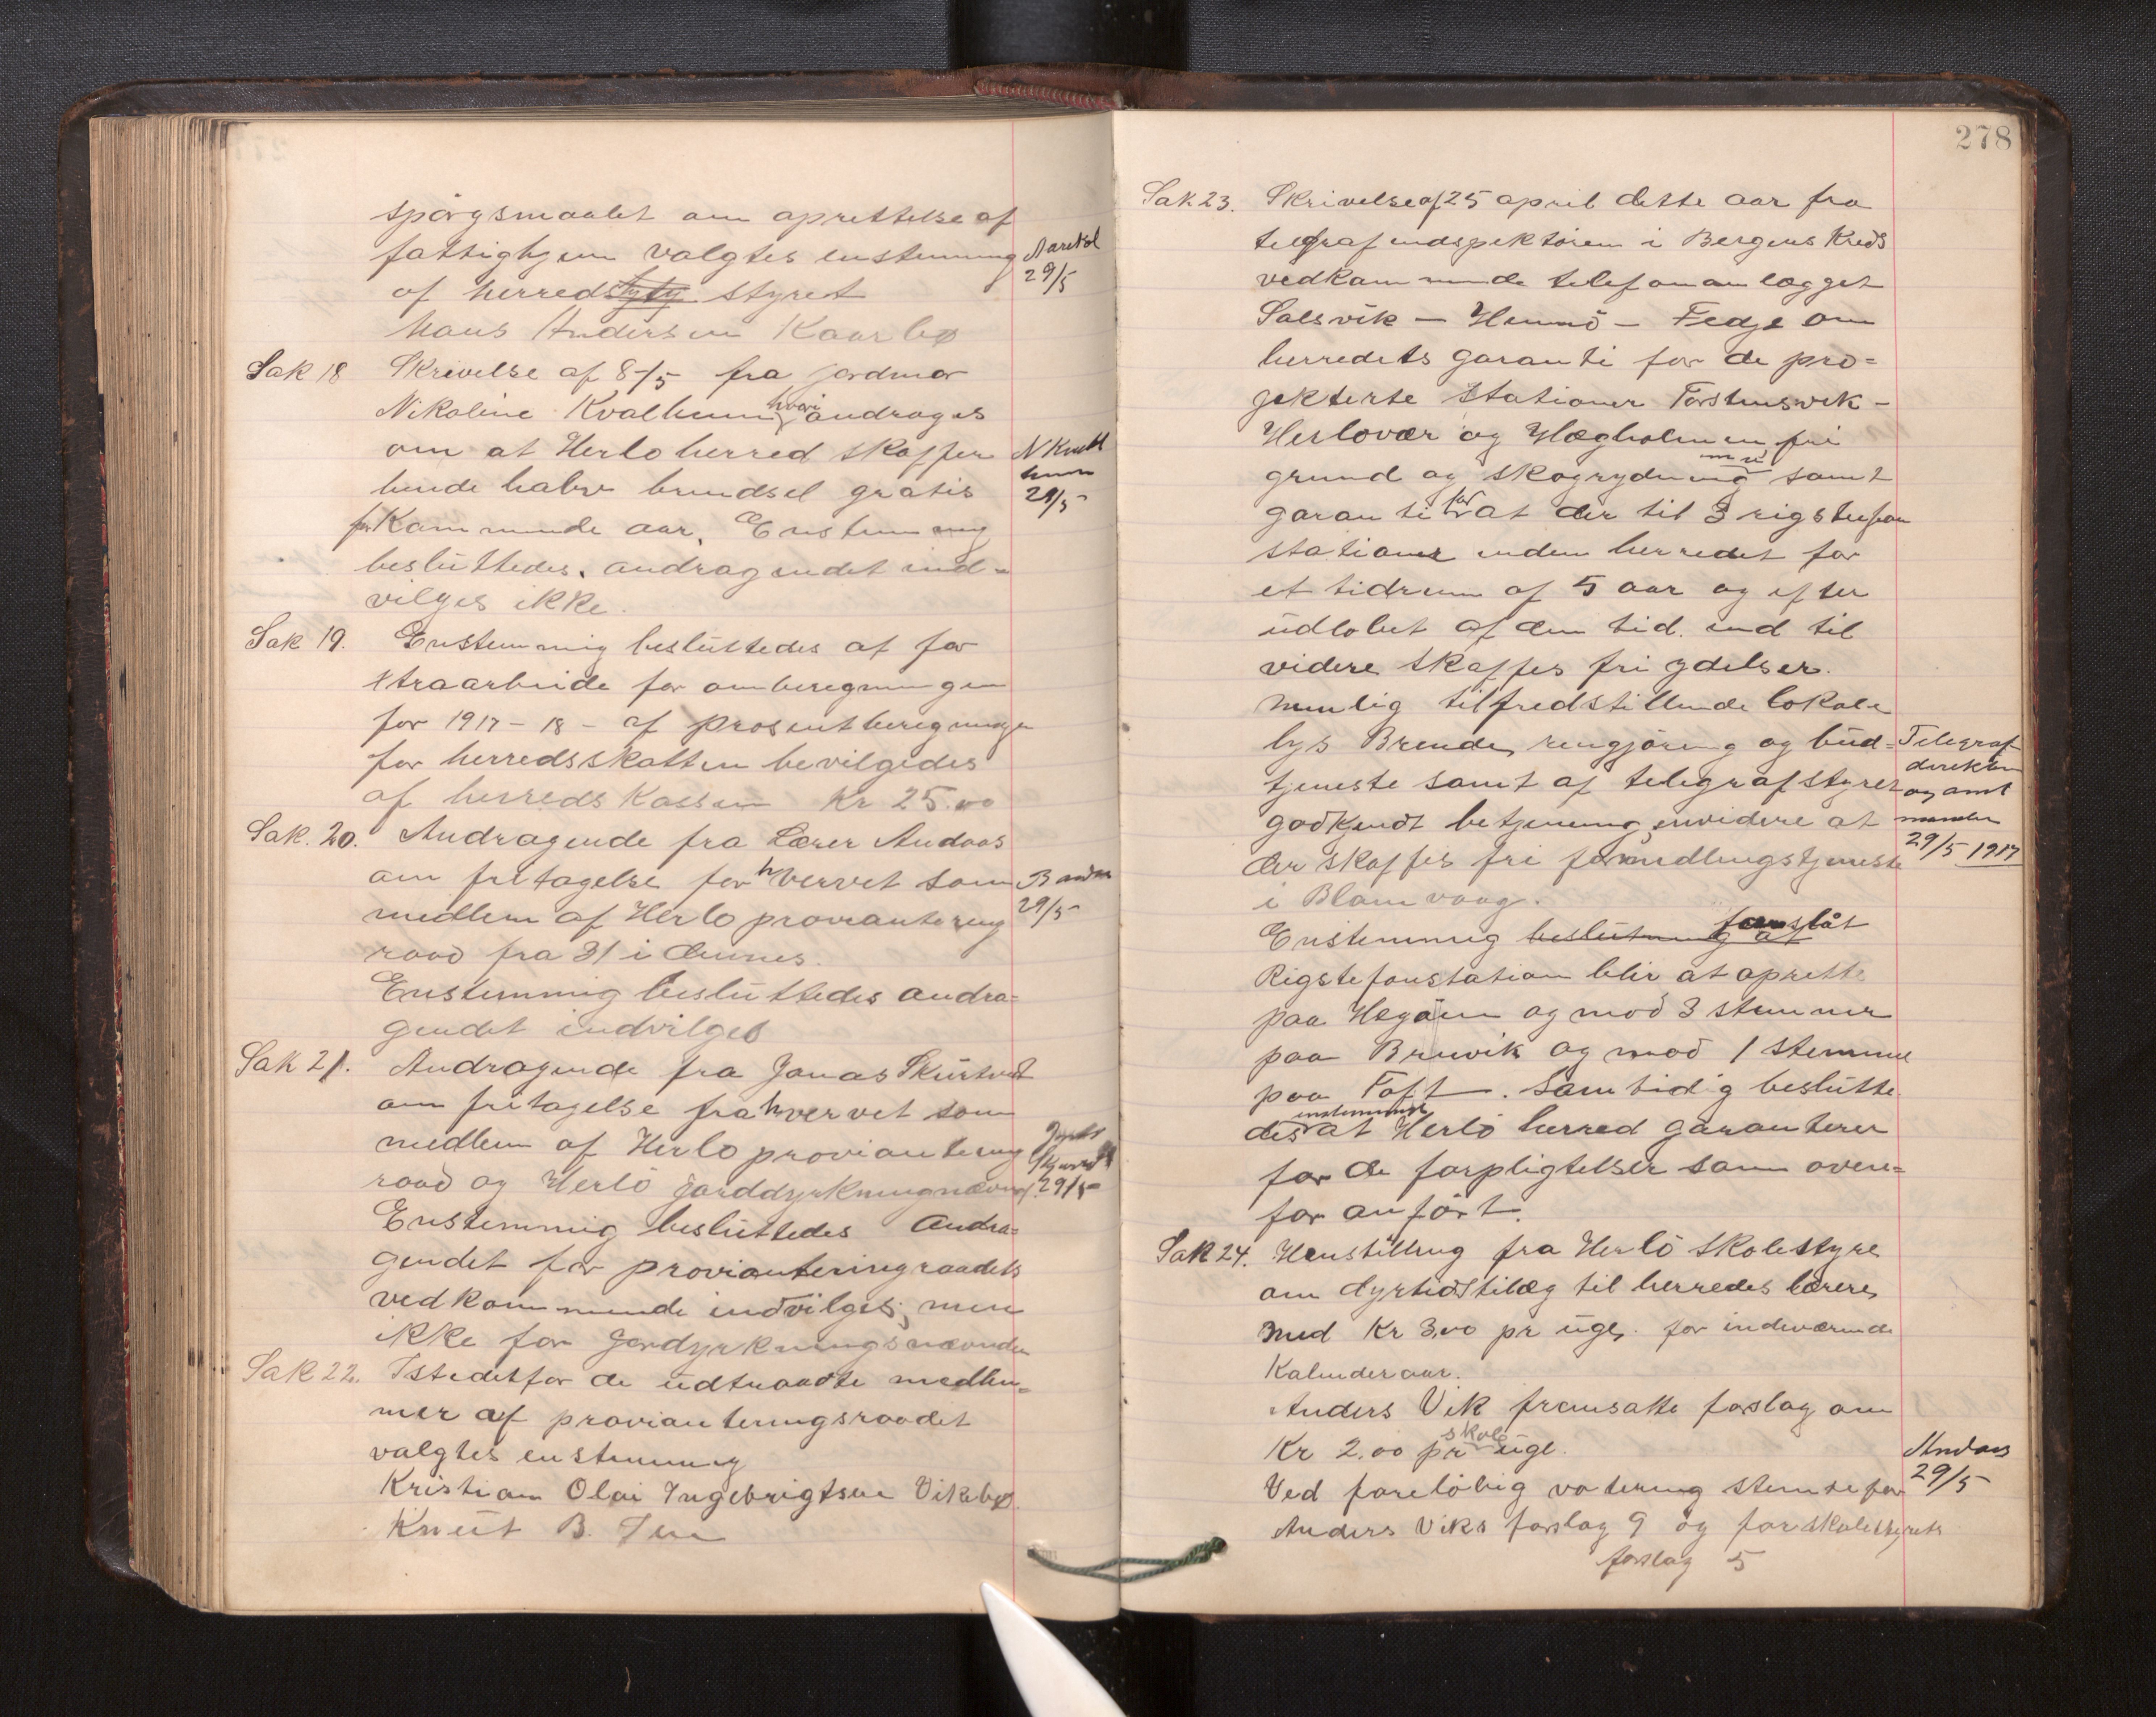 spørgsmaalet om oprettelse af
fattighjem valgtes enstemmig
af herreds styret
Hans Andersen Kaarbø
Sak 18 Skrivelse af 8/5 fra jordmor
Nikoline Kvalheim hvori andrages
om at Herlø herred skaffer
hende halve brendsel gratis
for kommende aar. Enstemmig
besluttedes. andragendet ind-
vilges ikke.
N Kvalheim
29/5
Sak 19. Enstemmig besluttedes at for
straarbeide for omberegningen
for 1917-18- af prosentberegningen
for herredsskatten bevilgedes
af herredskassen Kr 25.00
Sak. 20. Andragende fra Lærer Andaas
om fritagelse for hvervet som
medlem af Herlo provianterings
raad fra 31 i dennes.
Enstemmig besluttedes andra=
gendet indvilges
29/5
Sak 21. Andragende fra Jonas Skurtveit
om fritagelse fra hvervet som
medlem af Herlo proviantering
raad og Herlö Jorddyrkningnævnd.
Enstemmig besluttedes Andra=
gendet for provianteringraadets
vedkommende indvilges, men
ikke for jordyrkningsnævnden
29/5
Sak 22. Istedetfor de udtraadte medlem=
mer af provianteringsraadet
valgtes enstemmig
Kristian Olai Ingebrigtsen Vikebø
Knut B.
278
Sak. 23. Skrivelse af 25 april dette aar fra
telegrafindspektören i Bergens Kreds
vedkommende telefonanlægget
Salsvik - Hennö - Fedje om
herredets garanti for de pro=
jekterte stationer Torsteinsvik -
Herlovær og Hægholmen fri
grund og skogrydning samt
garanti for at der til 3 rigstelefon
stationer inden herredet for
et tidrum af 5 aar og efter
udlobet af den tid. ind til
videre skaffes fri ydelser.
nemlig tilfredstillende lokale
lys Brende, rengjøring og bud=
tjeneste samt af telegrafstyret
godkjendt betjening, envidere at
der skaffes fri formedlingstjeneste
i Blomvaag.
Telegraf
direktør
og amt
manden
29/5 1917
Enstemmig beslutning at foreslåt
Rigstelefonstation blir at oprette
paa Hægöien og mod 3 stemmer
paa Bruvik og mod 1 stemme
paa Toft. Samtidig beslutte
des enstemmigt at Herlö herred garanterer
for de forpligtelser som oven=
for anfört.
Sak 24. Henstilling fra Herlö skolestyre
om dyrtidstilæg til herredes lærere,
med Kr 3,00 pr uge. for indeværende
Kalenderaar.
Anders Vik fremsatte forslag om
Kr 2.00 pr skole uge.
Ved foreløbig votering stemte for
Anders Viks forslag 9 og for skolestyrets
forslag 5
Andaas
29/5